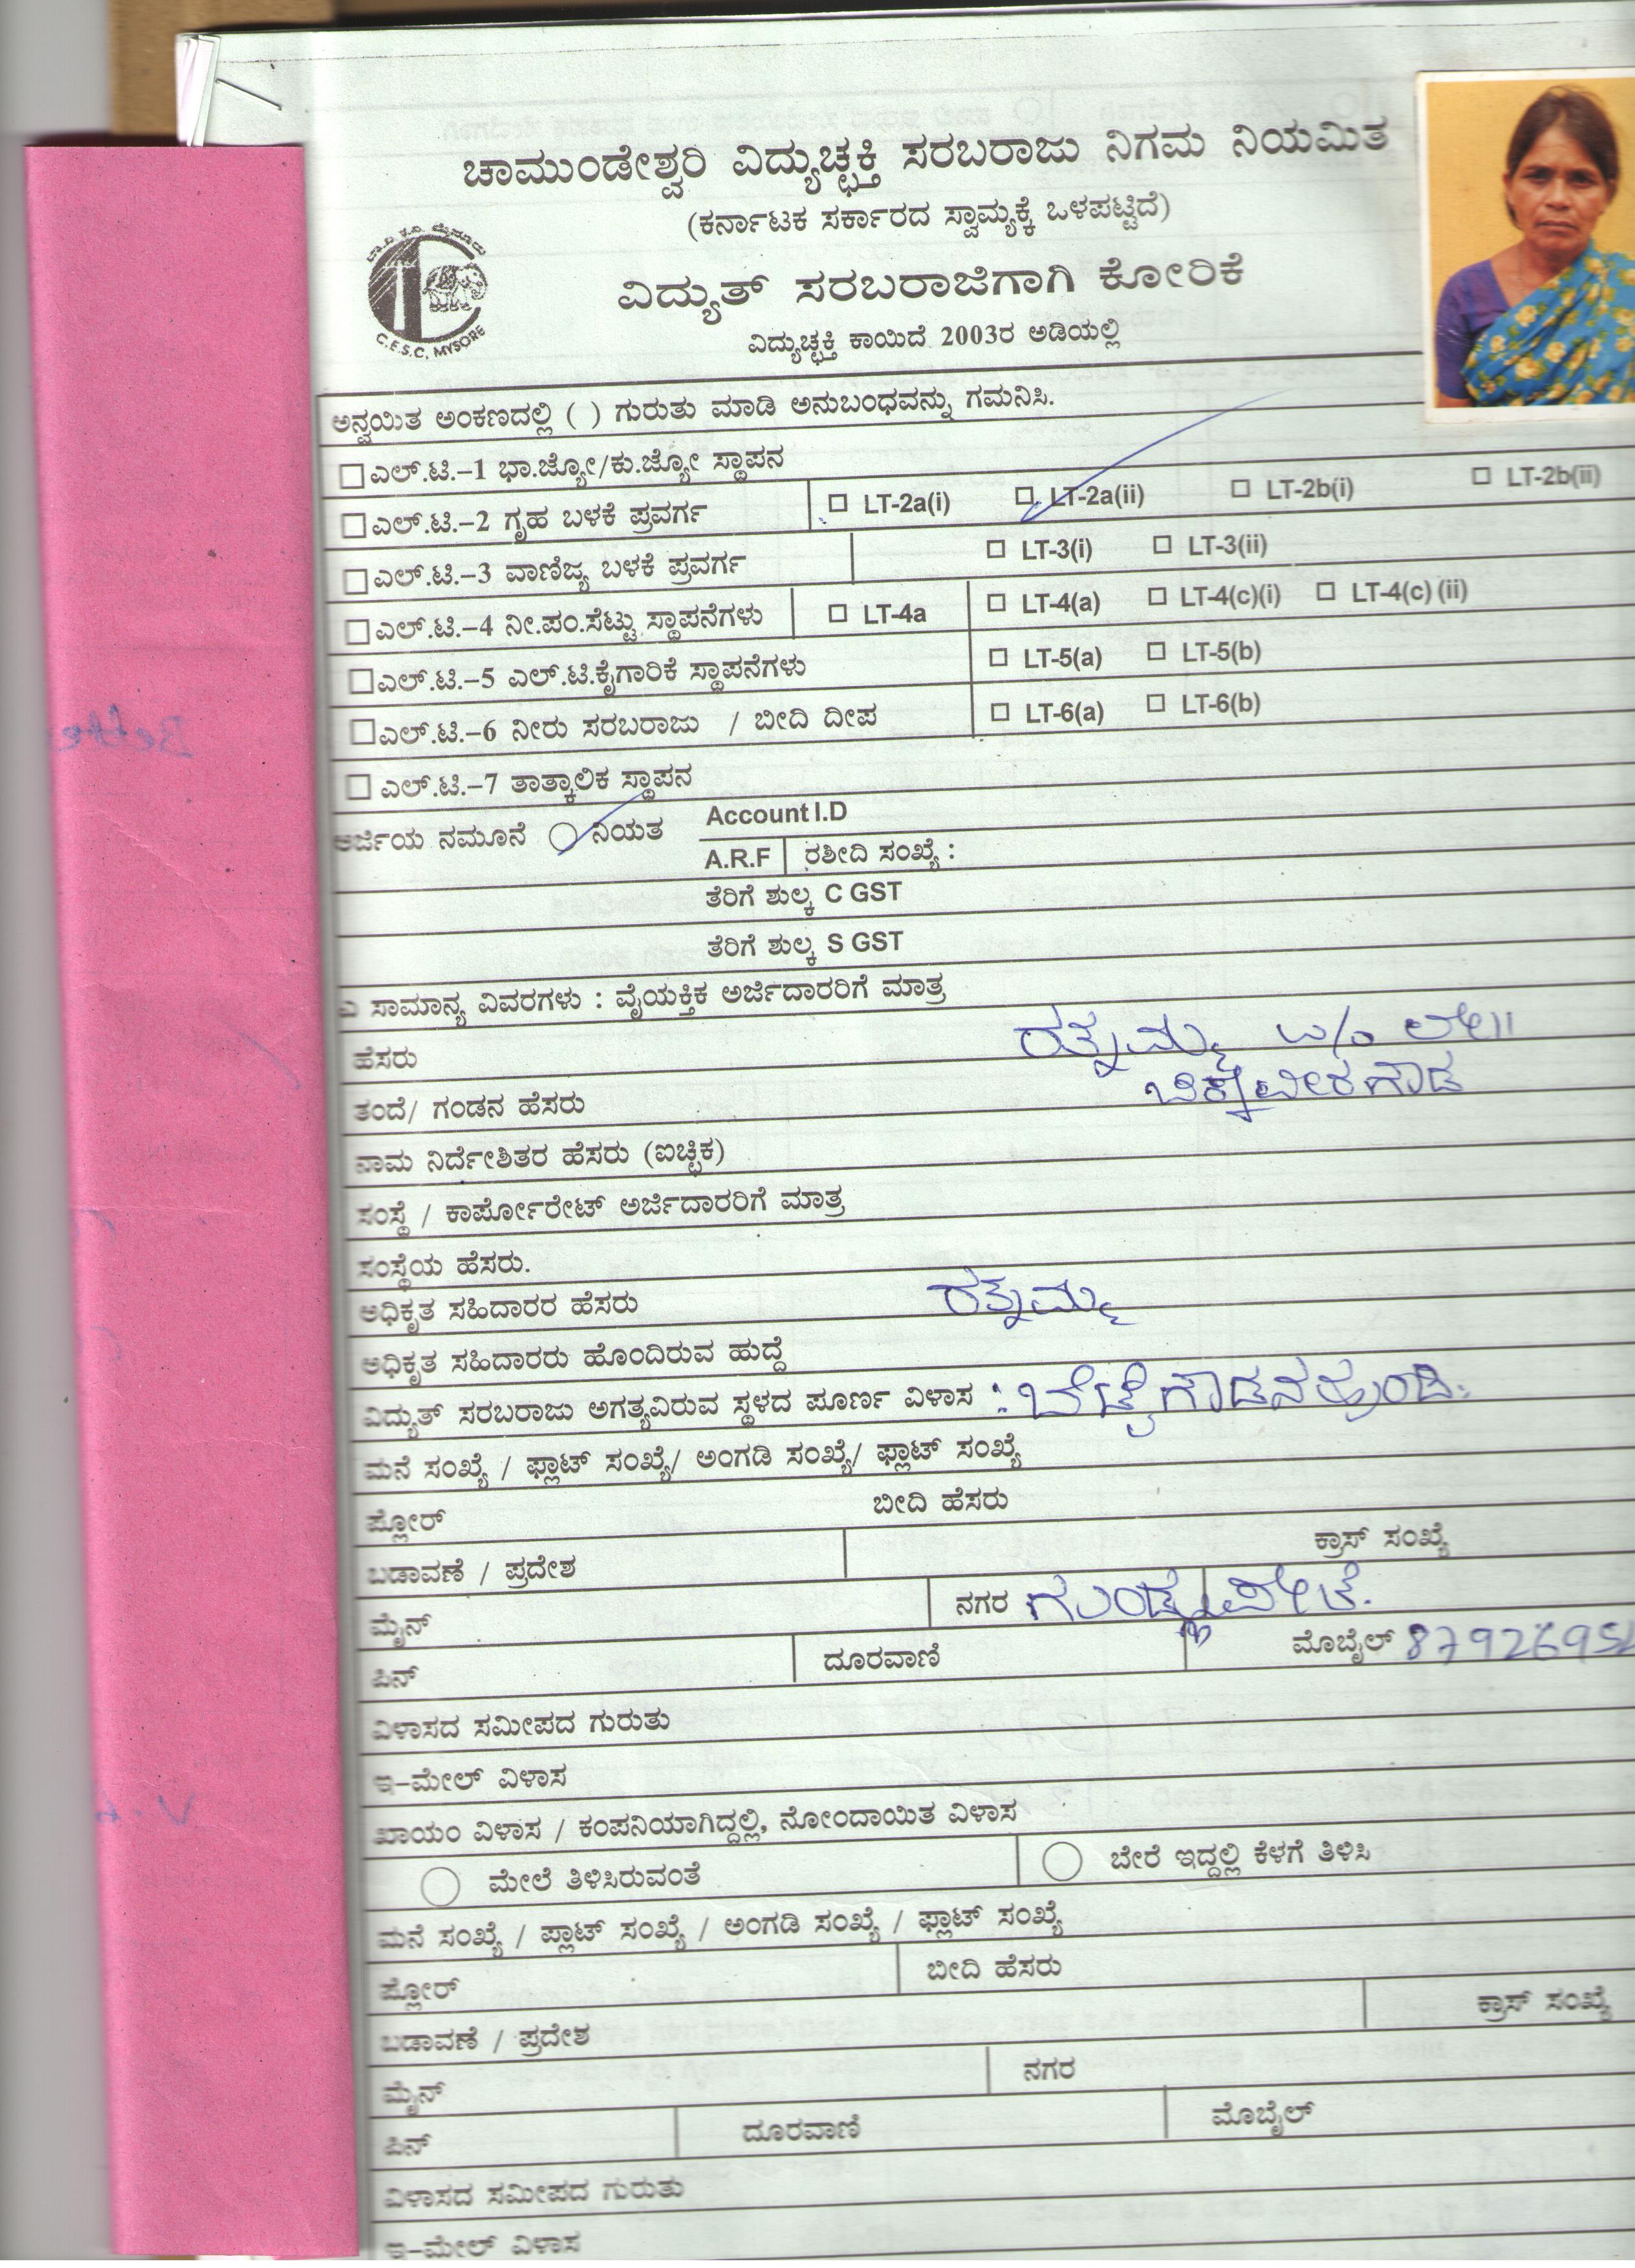 ಚಾಮುಂಡೇಶ್ವರಿ ವಿದ್ಯುಚ್ಛಕ್ತಿ ಸರಬರಾಜು ನಿಗಮ ನಿಯಮಿತ
(ಕರ್ನಾಟಕ ಸರ್ಕಾರದ ಸ್ವಾಮ್ಯಕ್ಕೆ ಒಳಪಟ್ಟಿದೆ)
C.E.S.C. MYSORE
ವಿದ್ಯುತ್ ಸರಬರಾಜಿಗಾಗಿ ಕೋರಿಕೆ
ವಿದ್ಯುಚ್ಛಕ್ತಿ ಕಾಯಿದೆ 2003ರ ಅಡಿಯಲ್ಲಿ
ಅನ್ವಯಿತ ಅಂಕಣದಲ್ಲಿ ( ) ಗುರುತು ಮಾಡಿ ಅನುಬಂಧವನ್ನು ಗಮನಿಸಿ.
ಎಲ್.ಟಿ.-1 ಭಾ.ಜ್ಯೋ/ಕು.ಜ್ಯೋ ಸ್ಥಾಪನ
ಎಲ್.ಟಿ.-2 ಗೃಹ ಬಳಕೆ ಪ್ರವರ್ಗ LT-2a(i) LT-2a(ii) LT-2b(i) LT-2b(ii)
ಎಲ್.ಟಿ.-3 ವಾಣಿಜ್ಯ ಬಳಕೆ ಪ್ರವರ್ಗ LT-3(i) LT-3(ii)
ಎಲ್.ಟಿ.-4 ನೀ.ಪಂ.ಸೆಟ್ಟು ಸ್ಥಾಪನೆಗಳು LT-4a LT-4(a) LT-4(c)(i) LT-4(c) (ii)
ಎಲ್.ಟಿ.-5 ಎಲ್.ಟಿ.ಕೈಗಾರಿಕೆ ಸ್ಥಾಪನೆಗಳು LT-5(a) LT-5(b)
ಎಲ್.ಟಿ.-6 ನೀರು ಸರಬರಾಜು / ಬೀದಿ ದೀಪ LT-6(a) LT-6(b)
ಎಲ್.ಟಿ.-7 ತಾತ್ಕಾಲಿಕ ಸ್ಥಾಪನ
ಅರ್ಜಿಯ ನಮೂನೆ ನಿಯತ Account I.D
A.R.F ರಶೀದಿ ಸಂಖ್ಯೆ :
ತೆರಿಗೆ ಶುಲ್ಕ C GST
ತೆರಿಗೆ ಶುಲ್ಕ S GST
ಎ ಸಾಮಾನ್ಯ ವಿವರಗಳು : ವೈಯಕ್ತಿಕ ಅರ್ಜಿದಾರರಿಗೆ ಮಾತ್ರ
ಹೆಸರು ರತ್ನಮ್ಮ W/o ಲೇ||
ತಂದೆ/ ಗಂಡನ ಹೆಸರು ಚಿಕ್ಕವೀರಗೌಡ
ನಾಮ ನಿರ್ದೇಶಿತರ ಹೆಸರು (ಐಚ್ಛಿಕ)
ಸಂಸ್ಥೆ / ಕಾರ್ಪೋರೇಟ್ ಅರ್ಜಿದಾರರಿಗೆ ಮಾತ್ರ
ಸಂಸ್ಥೆಯ ಹೆಸರು.
ಅಧಿಕೃತ ಸಹಿದಾರರ ಹೆಸರು ರತ್ನಮ್ಮ
ಅಧಿಕೃತ ಸಹಿದಾರರು ಹೊಂದಿರುವ ಹುದ್ದೆ
ವಿದ್ಯುತ್ ಸರಬರಾಜು ಅಗತ್ಯವಿರುವ ಸ್ಥಳದ ಪೂರ್ಣ ವಿಳಾಸ :
ಮನೆ ಸಂಖ್ಯೆ / ಫ್ಲಾಟ್ ಸಂಖ್ಯೆ/ ಅಂಗಡಿ ಸಂಖ್ಯೆ/ ಫ್ಲಾಟ್ ಸಂಖ್ಯೆ
ಫ್ಲೋರ್ ಬೀದಿ ಹೆಸರು
ಬಡಾವಣೆ / ಪ್ರದೇಶ ಕ್ರಾಸ್ ಸಂಖ್ಯೆ
ಮೈನ್ ನಗರ ಗುಂಡ್ಲುಪೇಟೆ.
ಪಿನ್ ದೂರವಾಣಿ ಮೊಬೈಲ್ 87926952
ವಿಳಾಸದ ಸಮೀಪದ ಗುರುತು
ಇ-ಮೇಲ್ ವಿಳಾಸ
ಖಾಯಂ ವಿಳಾಸ / ಕಂಪನಿಯಾಗಿದ್ದಲ್ಲಿ, ನೋಂದಾಯಿತ ವಿಳಾಸ
ಮೇಲೆ ತಿಳಿಸಿರುವಂತೆ ಬೇರೆ ಇದ್ದಲ್ಲಿ ಕೆಳಗೆ ತಿಳಿಸಿ
ಮನೆ ಸಂಖ್ಯೆ / ಪ್ಲಾಟ್ ಸಂಖ್ಯೆ / ಅಂಗಡಿ ಸಂಖ್ಯೆ / ಫ್ಲಾಟ್ ಸಂಖ್ಯೆ
ಫ್ಲೋರ್ ಬೀದಿ ಹೆಸರು
ಬಡಾವಣೆ / ಪ್ರದೇಶ ಕ್ರಾಸ್ ಸಂಖ್ಯೆ
ಮೈನ್ ನಗರ
ಪಿನ್ ದೂರವಾಣಿ ಮೊಬೈಲ್
ವಿಳಾಸದ ಸಮೀಪದ ಗುರುತು
ಇ-ಮೇಲ್ ವಿಳಾಸ